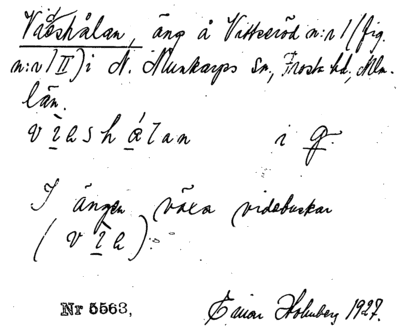 Vad̶shålan, äng å Vittseröd n:r 1 (fig.
n:r 1 II) i N. Munkarps sn, Frosta hd, Mlm.
län.
v ì e s h á l a n i g.
I ängen växa videbuskar
( v ì e ).
Nr 5563, Einar Holmberg 1927.